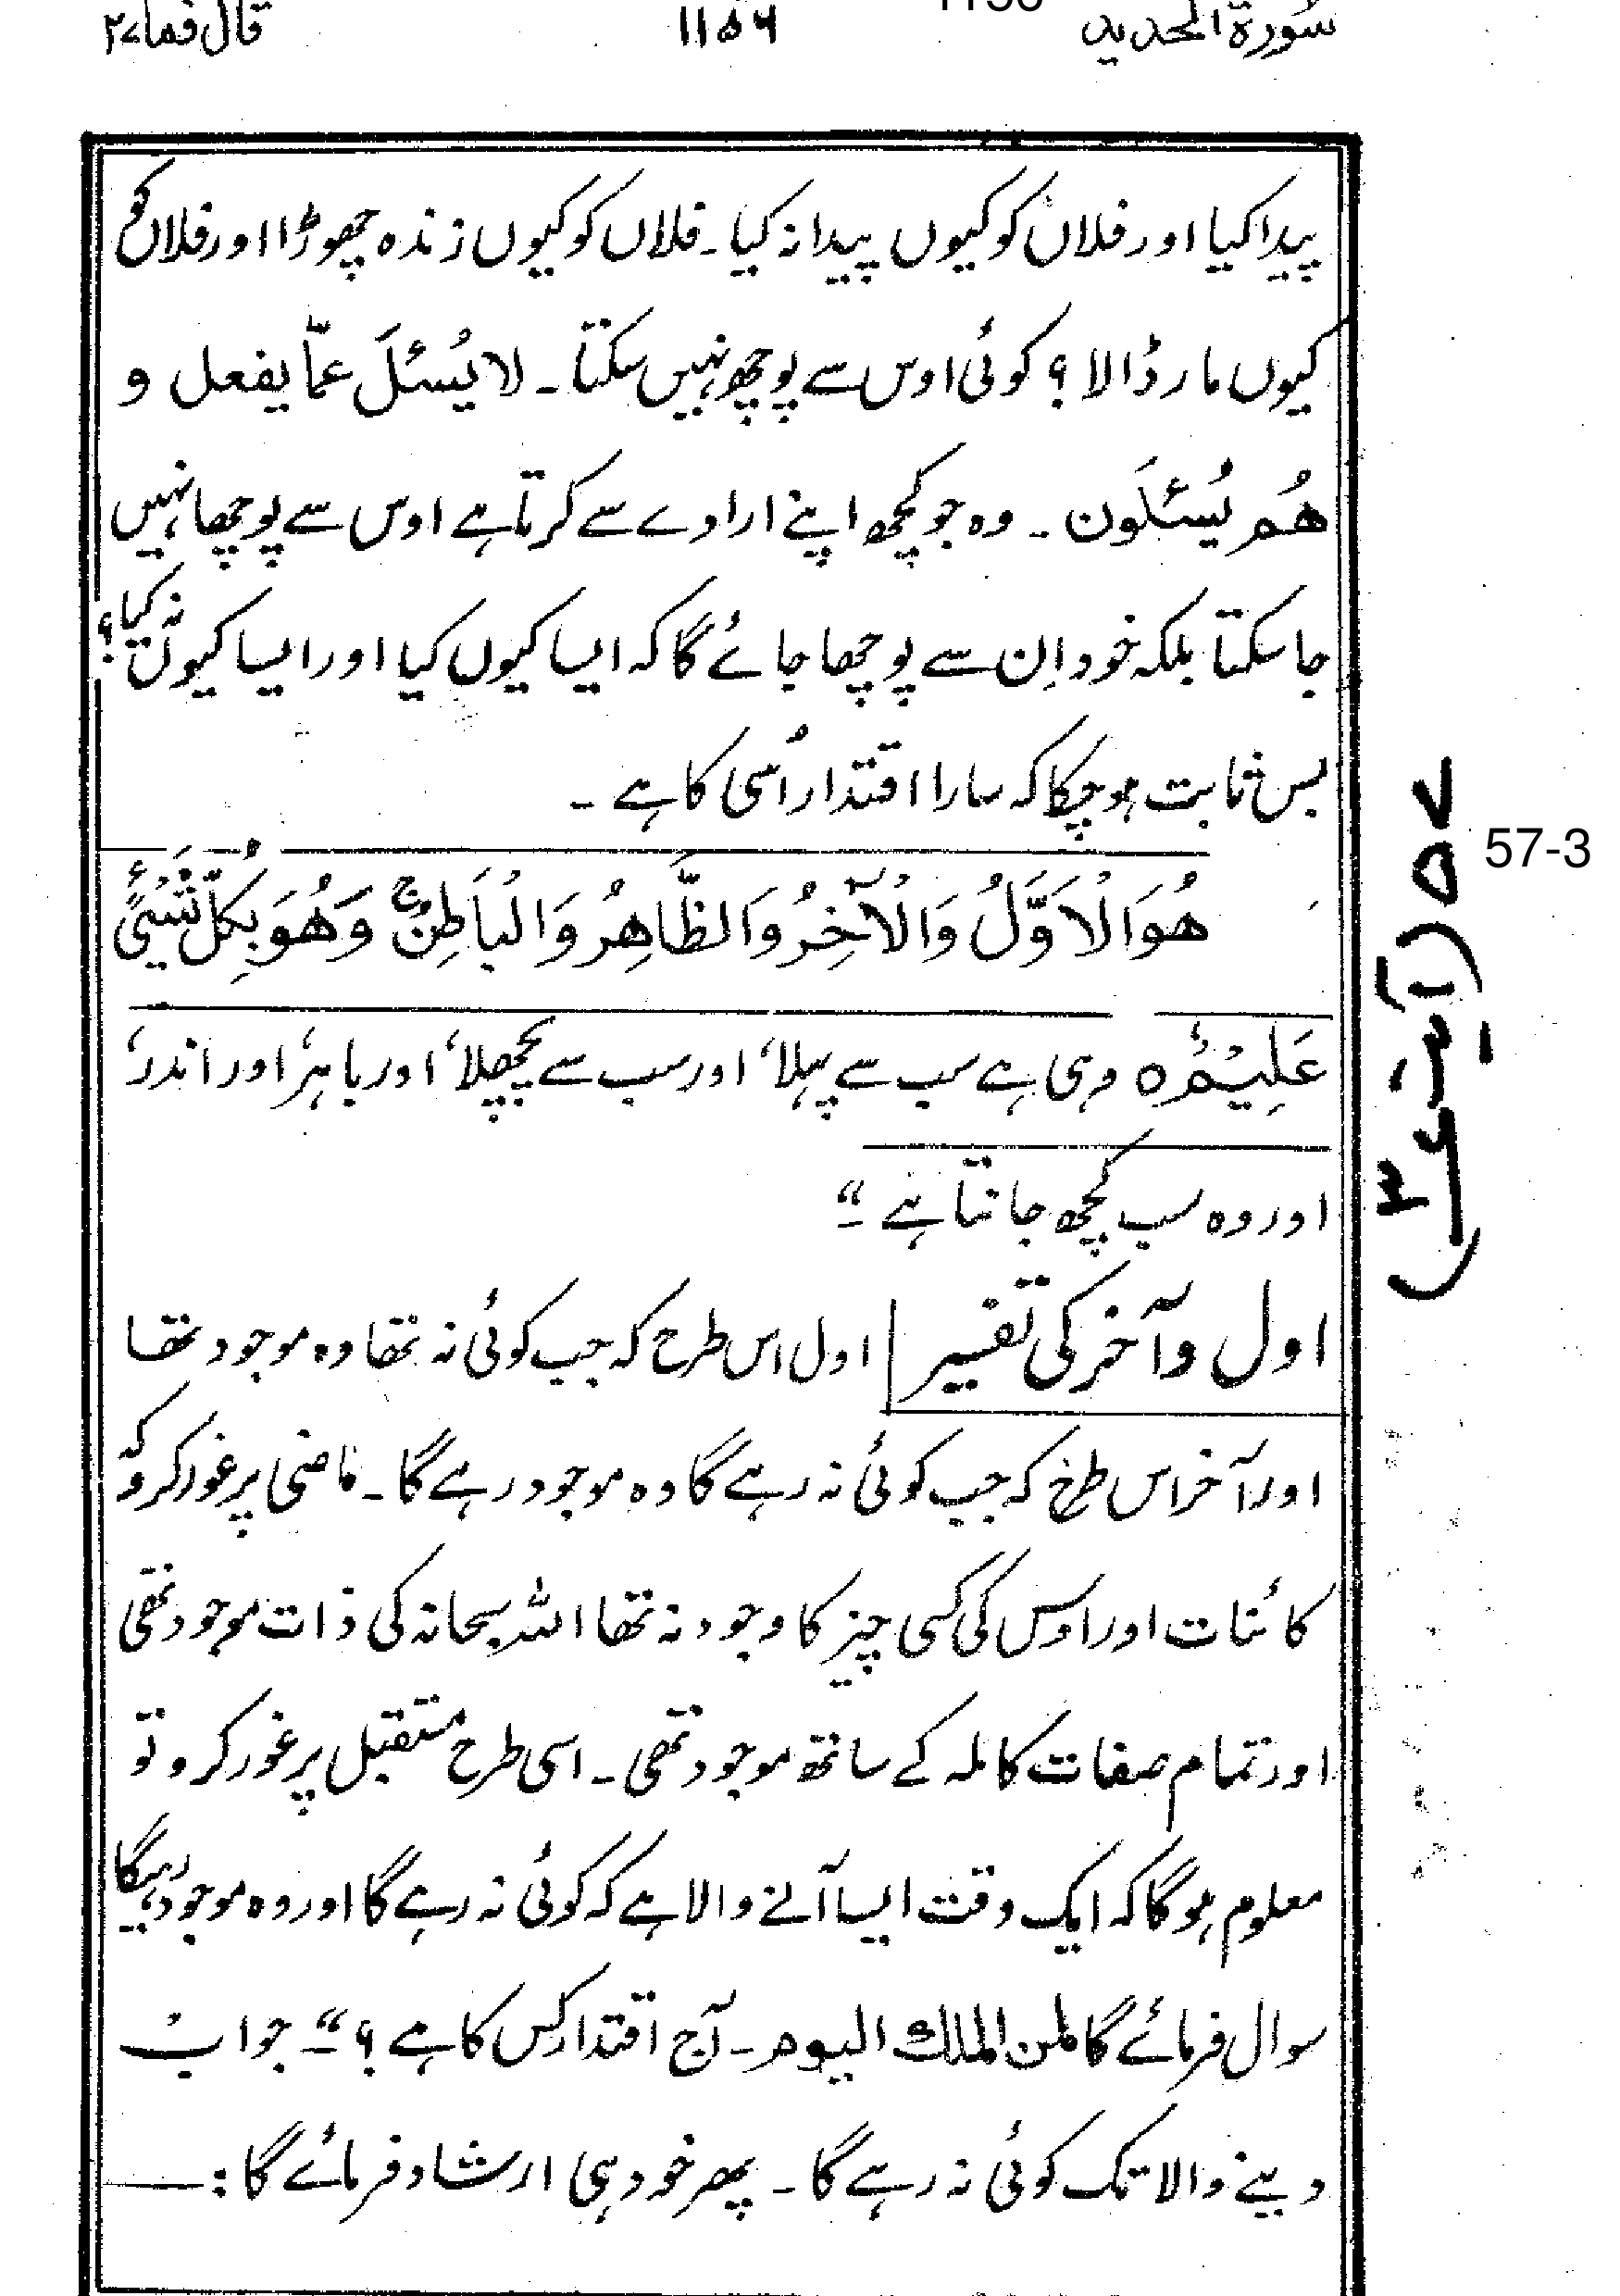 سورۃ الحدید ۱۱۵۶ قال فما ۲۷
پیدا کیا اور فلاں کو کیوں پیدا نہ کیا۔ فلاں کو کیوں زندہ چھوڑا اور فلاں کو
کیوں مار ڈالا؟ کوئی اوس سے پوچھ نہیں سکتا۔ لا یُسئلَ عمّا یفعل و
ھُم یُسئلَون۔ وہ جو کچھ اپنے ارادے سے کرتا ہے اوس سے پوچھا نہیں
جا سکتا بلکہ خود اِن سے پوچھا جائے گا کہ ایسا کیوں کیا اور ایسا کیوں نہ کیا؟
بس ثابت ہو چکا کہ سارا اقتدار اُسی کا ہے۔
ھُوَ الْاَوَّلُ وَالْاٰخِرُ وَالظَّاھِرُ وَالْبَاطِنُ ج وَھُوَ بِکُلِّ شَیْئٍ
عَلِیْمٌ ہ وہی ہے سب سے پہلا، اور سب سے پچھلا، اور باہر، اور اندر،
اور وہ سب کچھ جانتا ہے۔“
اول و آخر کی تفسیر | اول اس طرح کہ جب کوئی نہ تھا وہ موجود تھا
اور آخر اس طرح کہ جب کوئی نہ رہے گا وہ موجود رہے گا۔ ماضی پر غور کرو کہ
کائنات اور اوس کی کسی چیز کا وجود نہ تھا اللہ سبحانہ کی ذات موجود تھی
اور تمام صفات کاملہ کے ساتھ موجود تھی۔ اسی طرح مستقبل پر غور کرو تو
معلوم ہو گا کہ ایک وقت ایسا آنے والا ہے کہ کوئی نہ رہے گا اور وہ موجود رہیگا
سوال فرمائے گا لمن الملك الیوم۔ آج اقتدار کس کا ہے؟“ جواب
دینے والا تک کوئی نہ رہے گا۔ پھر خود ہی ارشاد فرمائے گا:
۵۷ (آیت ۳)
57-3